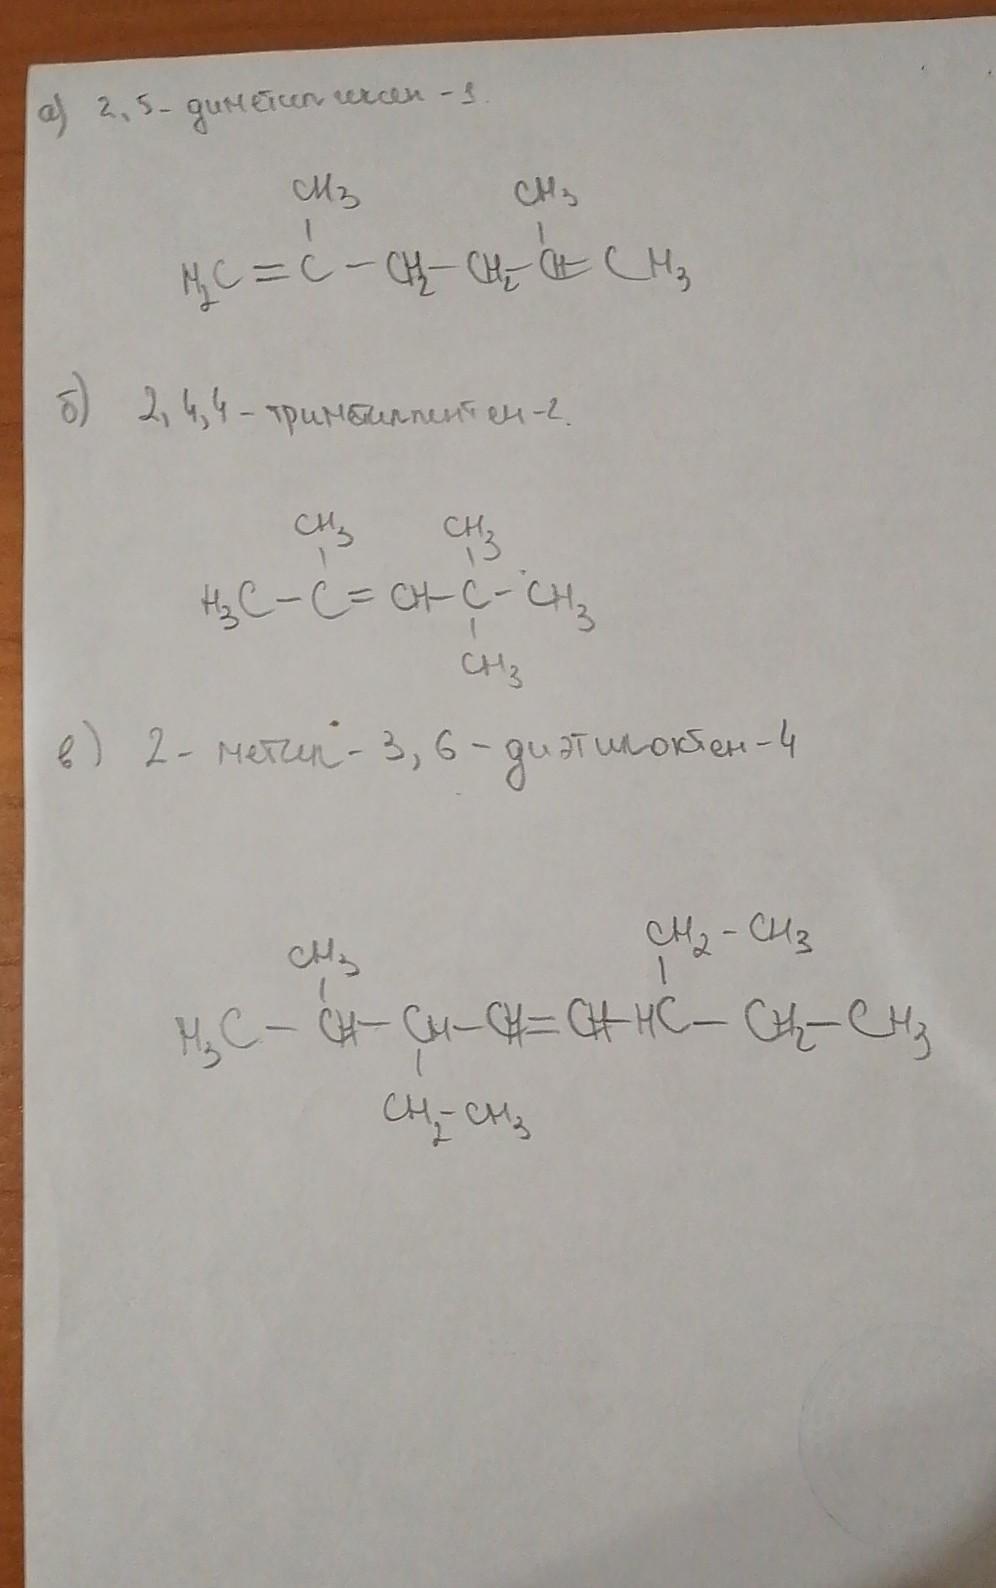 а) 2,5-диметилгексен-1.
CH3 CH3
H2C=C-CH2-CH2-CH=CH3
б) 2,4,4-триметилпентен-2.
CH3 CH3
H3C-C=CH-C-CH3
CH3
в) 2-метил-3,6-диэтилоктен-4
CH2-CH3
CH3
H3C-CH-CH-CH=CH-HC-CH2-CH3
CH2-CH3